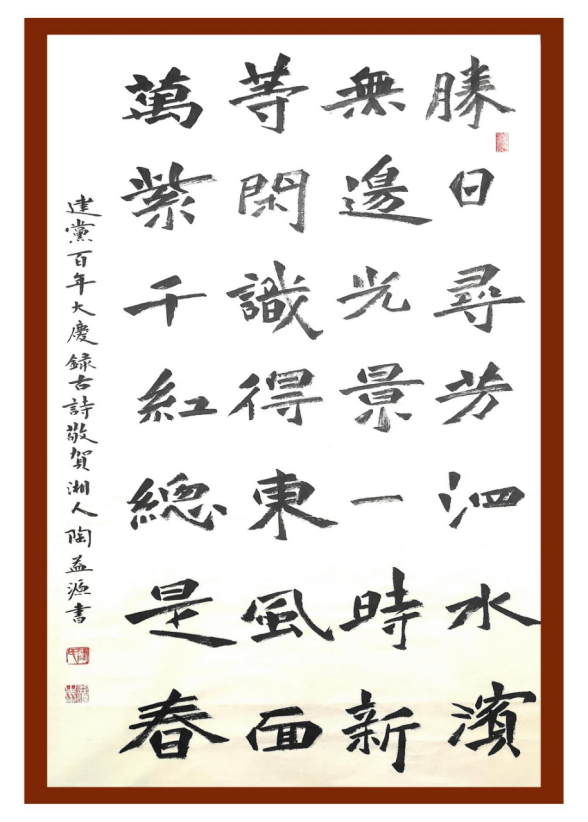 勝日尋芳泗水濱
無邊光景一時新
等閑識得東風面
萬紫千紅總是春
建黨百年大慶録古詩敬賀湘人陶益源書